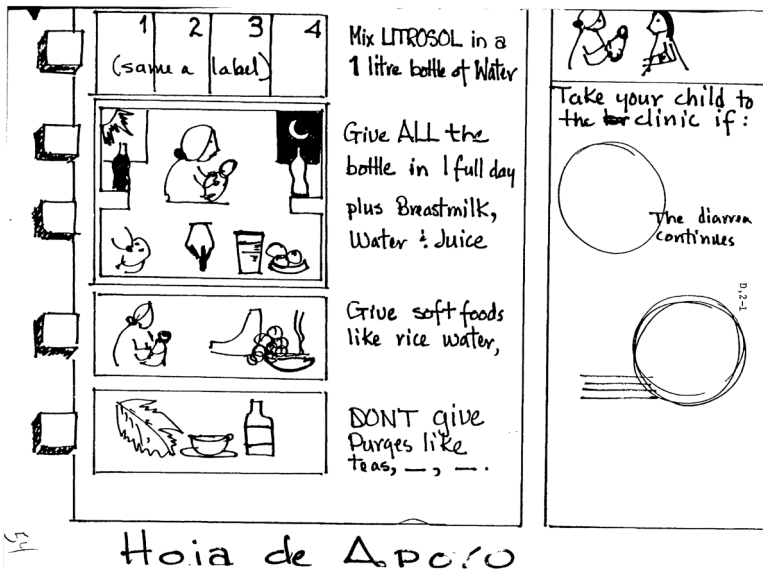 1 2 3 4
(same a label)
Mix LITROSOL in a
1 litre bottle of Water
Give ALL the
bottle in 1 full day
plus Breastmilk,
Water & Juice
Give soft foods
like rice water,
DON'T give
Purges like
teas, —, —.
Take your child to
the clinic if:
The diarrea
continues
D,2-1
54
Hoja de Apoyo